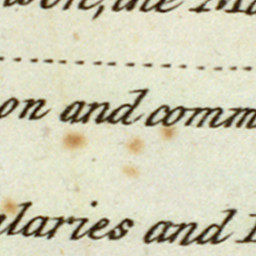 the
on and comm
laries and